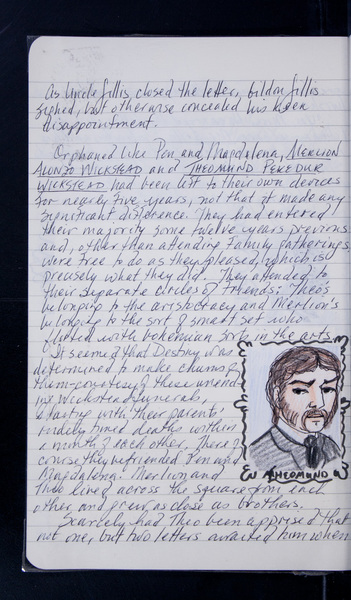 As Uncle Lillis closed the letter, Eildon Lillis
sighed, but otherwise concealed his keen
disappointment.
Orphaned like Pen and Magdalena, MERLION
ALONZO WICKSTEAD and THEOMUND PEREDUR
WICKSTEAD had been left to their own devices
for nearly five years, not that it made any
significant difference. They had entered
their majority some twelve years previous
and, other than attending family gatherings,
were free to do as they pleased, which is
precisely what they did. They attended to
their separate circles of friends; Theo's
belonging to the aristocracy and Merlion's
belonging to the sort of smart set who
flirted with bohemian sorts in the arts.
It seemed that Destiny was
determined to make chums of
them—courtesy of these unend-
ing Wickstead funerals,
starting with their parents'
timed deaths within
a month of each other. Then of
course they befriended Pen and
Magdalena. Merlion and
Theo lived across the square from each
other and grew as close as brothers.
Scarcely had Theo been apprised that
not one, but two letters awaited him when
THEOMUND